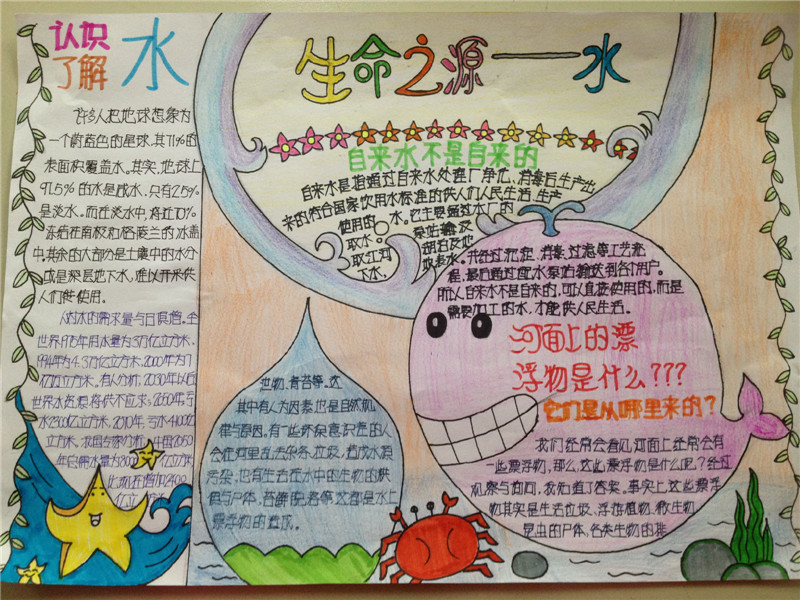 认识
了解 水
许多人把地球想象为
一个蔚蓝色的星球,其71%的
表面积覆盖水。其实,地球上
97.5%的水是咸水,只有2.5%
是淡水。而在淡水中,将近70%
冻结在南极和格陵兰的冰盖
中,其余的大部分是土壤中的水分
或是深层地下水,难以开采供
人们使用。
人对水的需求量与日俱增。全
世界1975年用水量为3万亿立方米,
1994年为4.3万亿立方米,2000年为7
万亿立方米。有人分析,2030年以后
世界水资源将供不应求:2050年
水2300亿立方米,2010年,亏水4100亿
立方米。我国专家分析
年总需水量为8000 亿立方米,
亿立
生命之源——水
自来水不是自来的
自来水是指通过自来水处理厂净化、消毒后生产出
来的符合国家饮用水标准的供人们人民生活、生产
使用的水。它主要通过水厂的
取水泵站汲取江河
湖泊及地下水,
地表水。并经过沉淀,消毒,过滤等工艺流
程,最后通过配水泵站输送到各个用户。
所以自来水不是自来的,可以直接使用的,而是
需要加工的水,才能供人民生活。
河面上的漂
浮物是什么???
它们是从哪里来的?
我们经常会看见河面上经常会有
一些漂浮物,那么,这些漂浮物是什么呢?经过
观察与询问,我知道了答案。事实上,这些漂浮
物其实是生活垃圾、浮游植物、微生物、
昆虫的尸体,各类生物的粪
池物,青苔等。这
其中有人为因素也是自然规
律与原因。有一些环保意识差的人
会在河里乱丢杂物、垃圾,造成水源
污染,也有生活在水中的生物的粪
便与尸体,苔藓
漂浮物的造成。